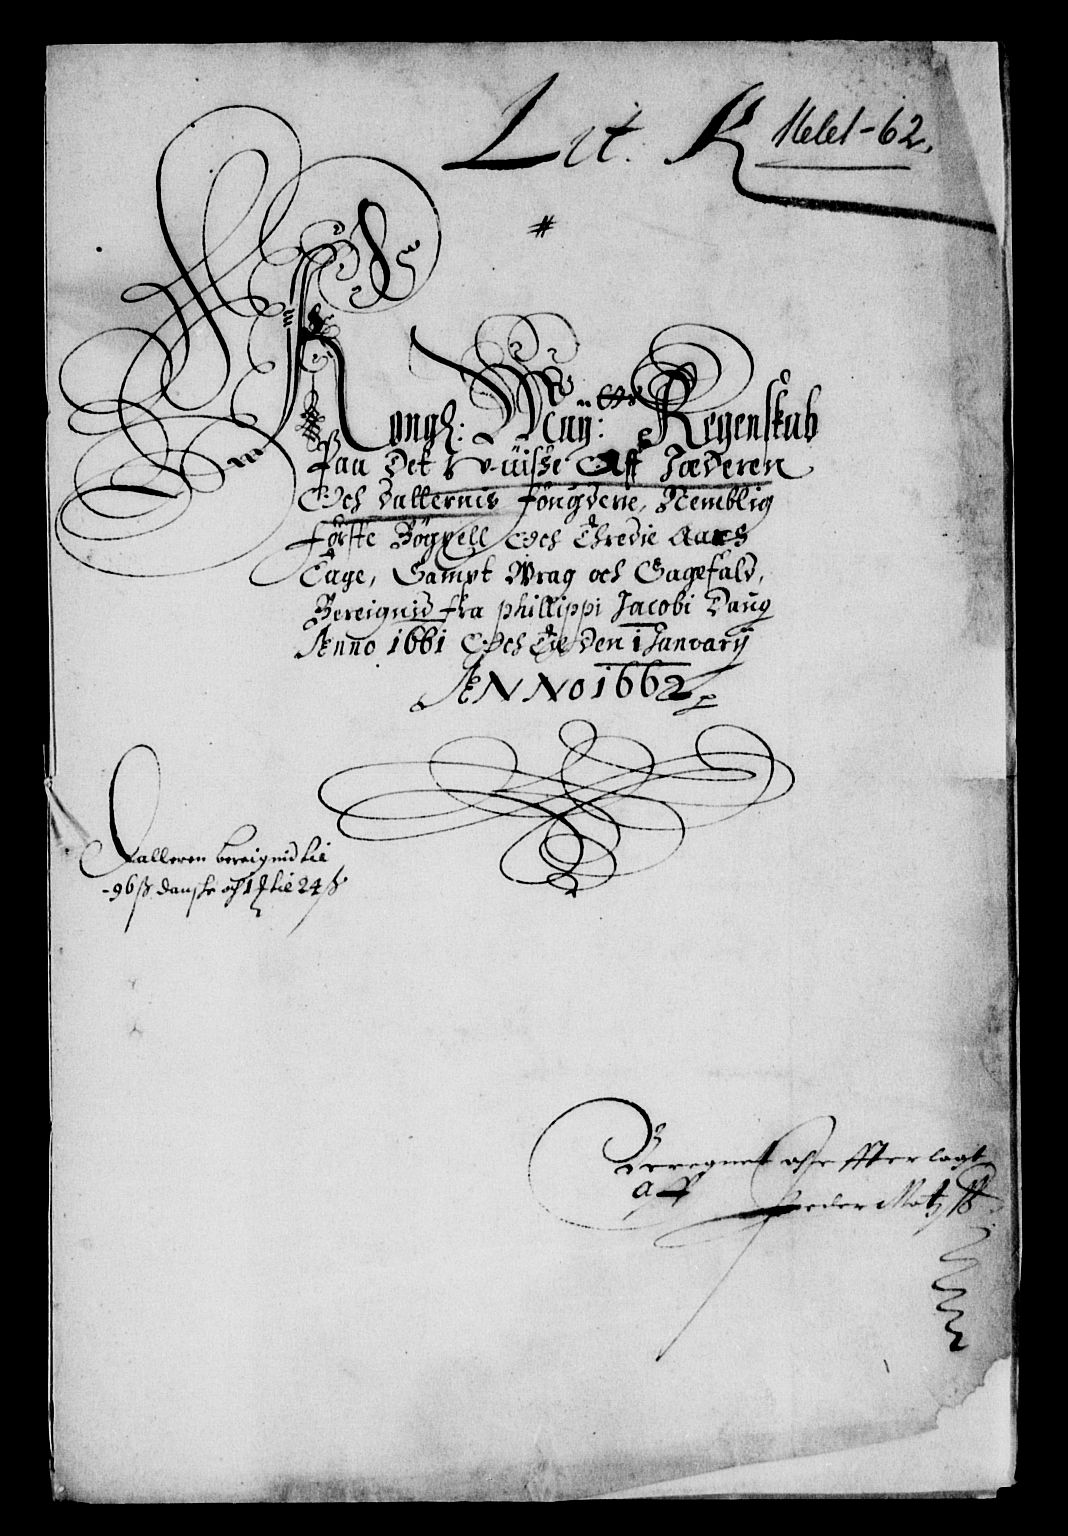 Lit. R 1661-62.
#
Kongl: Maÿ: tts Regenskab
Paa Det U-uisse Aff Jæderen
Och Dallernis fougderie, Nemblig
förste Bögxell Och Thredie Aars
Tage, Sampt Wrag och Sagefald,
Bereignid fra phillippi Jacobi Daug
Anno 1661 Och Til den 1 Januarij
ANNO 1662
Dalleren bereignid til
96 ß danske och 1 til 24 ß
Beregnet och effterlagt
Aff Peder Motzß